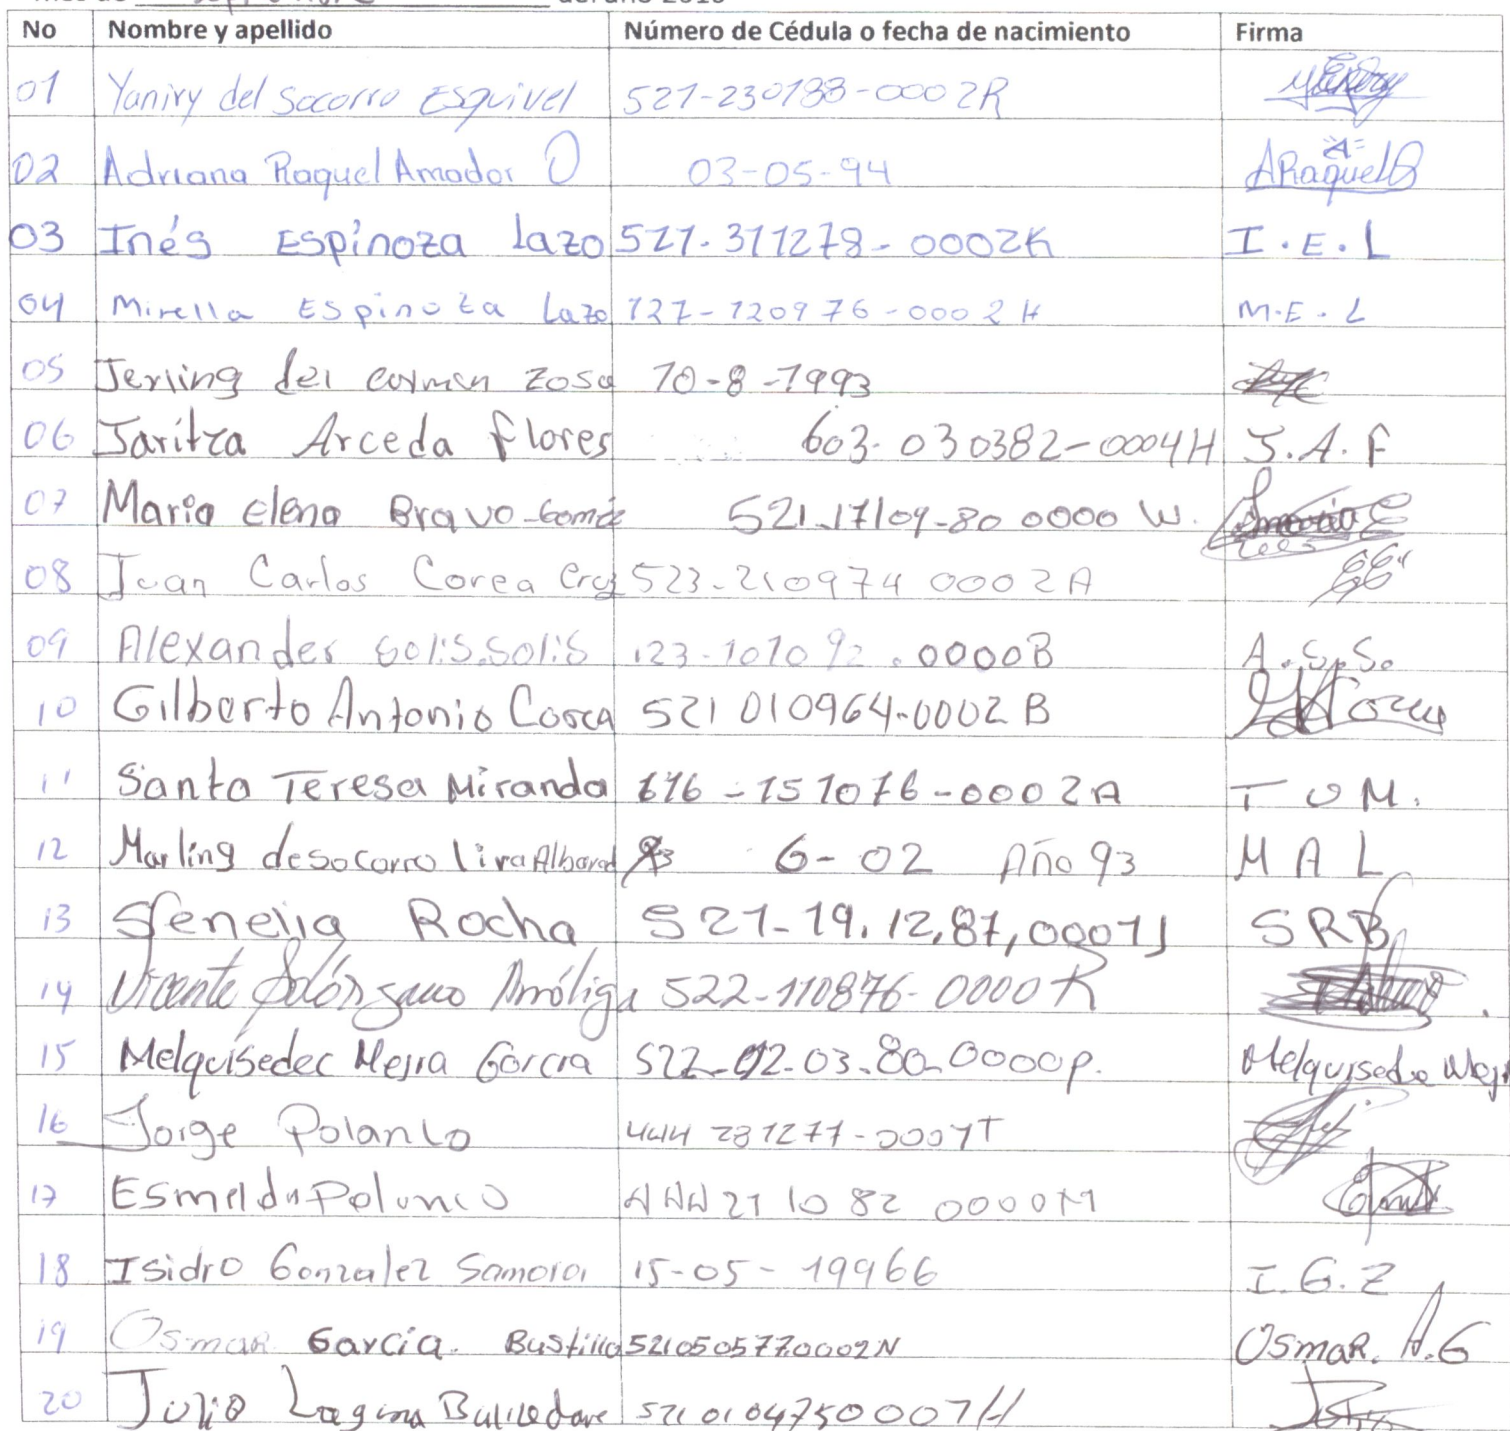 No Nombre y apellido Número de Cédula o fecha de nacimiento Firma
01 Yaniry del Socorro Esquivel 521-230188-0002R
02 Adriana Raquel Amador O 03-05-94 ARaquel
03 Inés Espinoza Lazo 521-311278-0002K I.E.L
04 Mirella Espinoza Lazo 127-120976-0002H M.E.L
05 Jerling del carmen Zosa 10-8-1993
06 Jaritza Arceda flores 603-030382-0004H J.A.F
07 Maria elena Bravo 521-17/09-80 0000 W.
08 Juan Carlos Corea Cruz 523-210974 0002A
09 Alexander Solis Solis 123-101092.0000B A.S.S.
10 Gilberto Antonio Corea 521 010964-0002B
11 Santa Teresa Miranda 616-151076-0002A T U M.
12 Marling desocorro lira 6-02 Año 93 M A L
13 Senelia Rocha 521-19.12,87,0001J SRB
14 Vicente Solórzano 522-110876-0000R
15 Melquisedec Mejia Garcia 522-02-03-80-0000p. Melquisede Mej
16 Jorge Polanco 444 281277-0001T
17 Esmelda Polanco 444 21 10 82 0000M
18 Isidro Gonzalez Samora 15-05-19966 I.G.Z
19 Osmar Garcia. Bustillo 5210505770002N OsmaR. A.G
20 Julio Laguna 5210104750007H